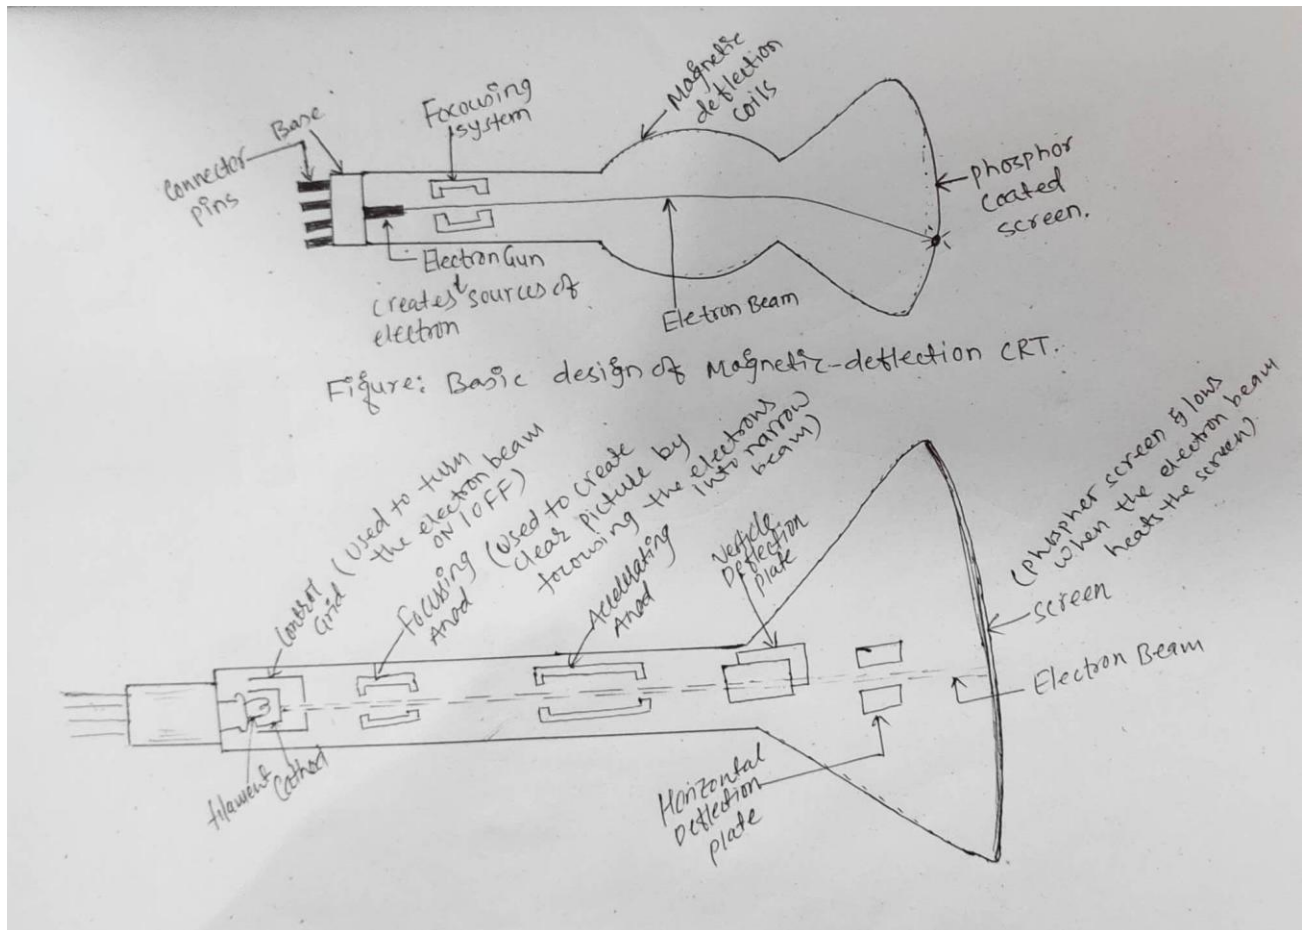 Connector
pins
Base
Focousing
system
Magnetic
deflection
coils
phosphor
coated
screen.
Electron Gun
creates sources of
electron
Eletron Beam
Figure: Basic design of Magnetic-deflection CRT.
Control
Grid (Used to turn
the electron beam
ON/OFF)
Focussing (Used to create
Anad clear picture by
focousing the electrons
into narrow
beam)
Accelerating
Anad
Verticle
Deflection
plate
(phospher screen glows
when the electron beam
heats the screen)
screen
Electron Beam
filament
Cathod
Horizontal
Deflection
plate